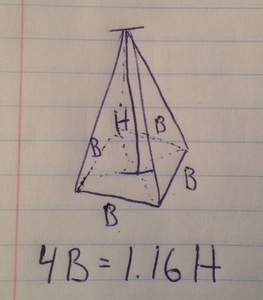 H
B
B
B
B
4B = 1.16 H